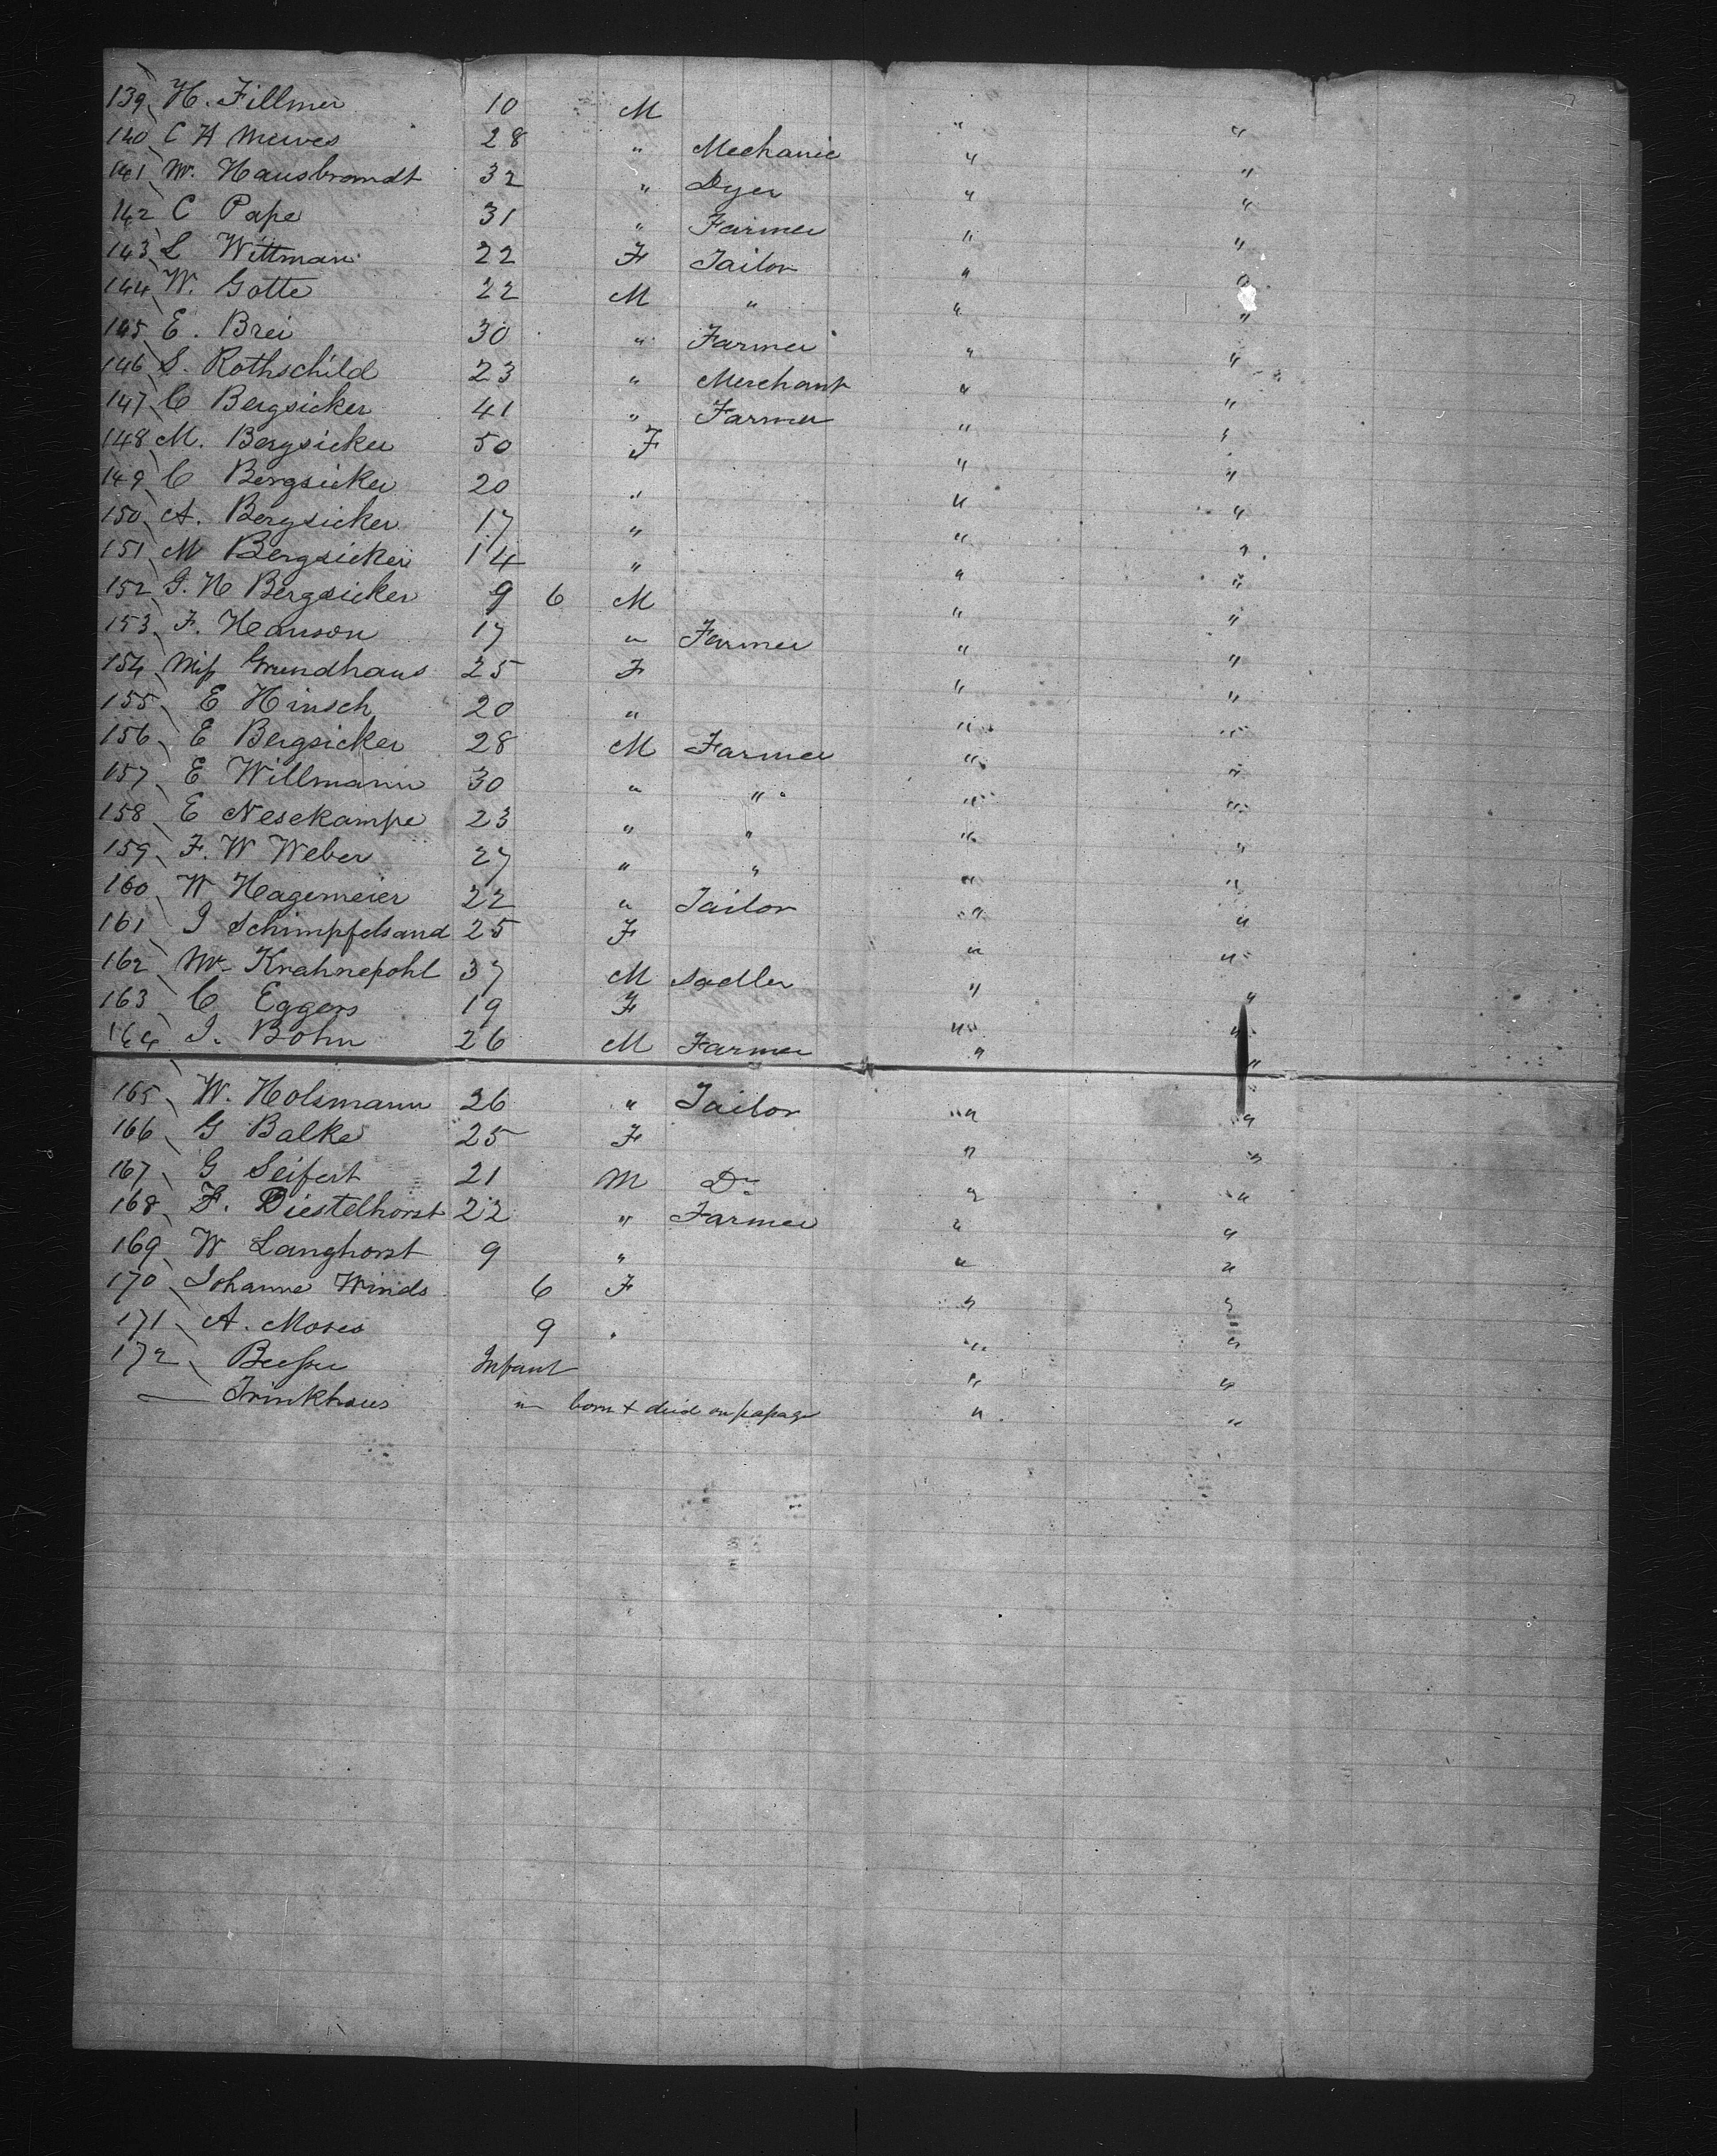 139 H. Fillmer 10 M " "
140 C H Mewes 28 " Mechanic " "
141 W. Hausbrandt 32 " Dyer " "
142 C Pape 31 " Farmer " "
143 L Wittman 22 F Tailor " "
144 W. Gotte 22 M " " "
145 E. Brei 30 " Farmer " "
146 S. Rothschild 23 " Merchant " "
147 C Bergsicker 41 " Farmer " "
148 M. Bergsicker 50 F " "
149 C Bergsicker 20 " " "
150 A. Bergsicker 17 " " "
151 M Bergsicker 14 " " "
152 J. H Bergsicker 9 6 M " "
153 F. Hanson 17 " Farmer " "
154 Miss Grundhaus 25 F " "
155 E Hinsch 20 " " "
156 E Bergsicker 28 M Farmer " "
157 E Willmann 30 " " " "
158 E Nesekampe 23 " " " "
159 F. W Weber 27 " " " "
160 W Hagemeier 22 " Tailor " "
161 J Schimpfelsand 25 F " "
162 W. Krahnepohl 37 M Sadler " "
163 C Eggers 19 F " "
164 J. Bohn 26 M Farmer " "
165 W. Holsmann 26 " Tailor " "
166 G Balke 25 F " "
167 G Seifert 21 M Do " "
168 F. Diestelhorst 22 " Farmer " "
169 W Langhorst 9 " " "
170 Johanne Winds 6 F " "
171 A. Moses 9 " " "
172 Infant " "
— Trinkhaus " born + died on passage " "